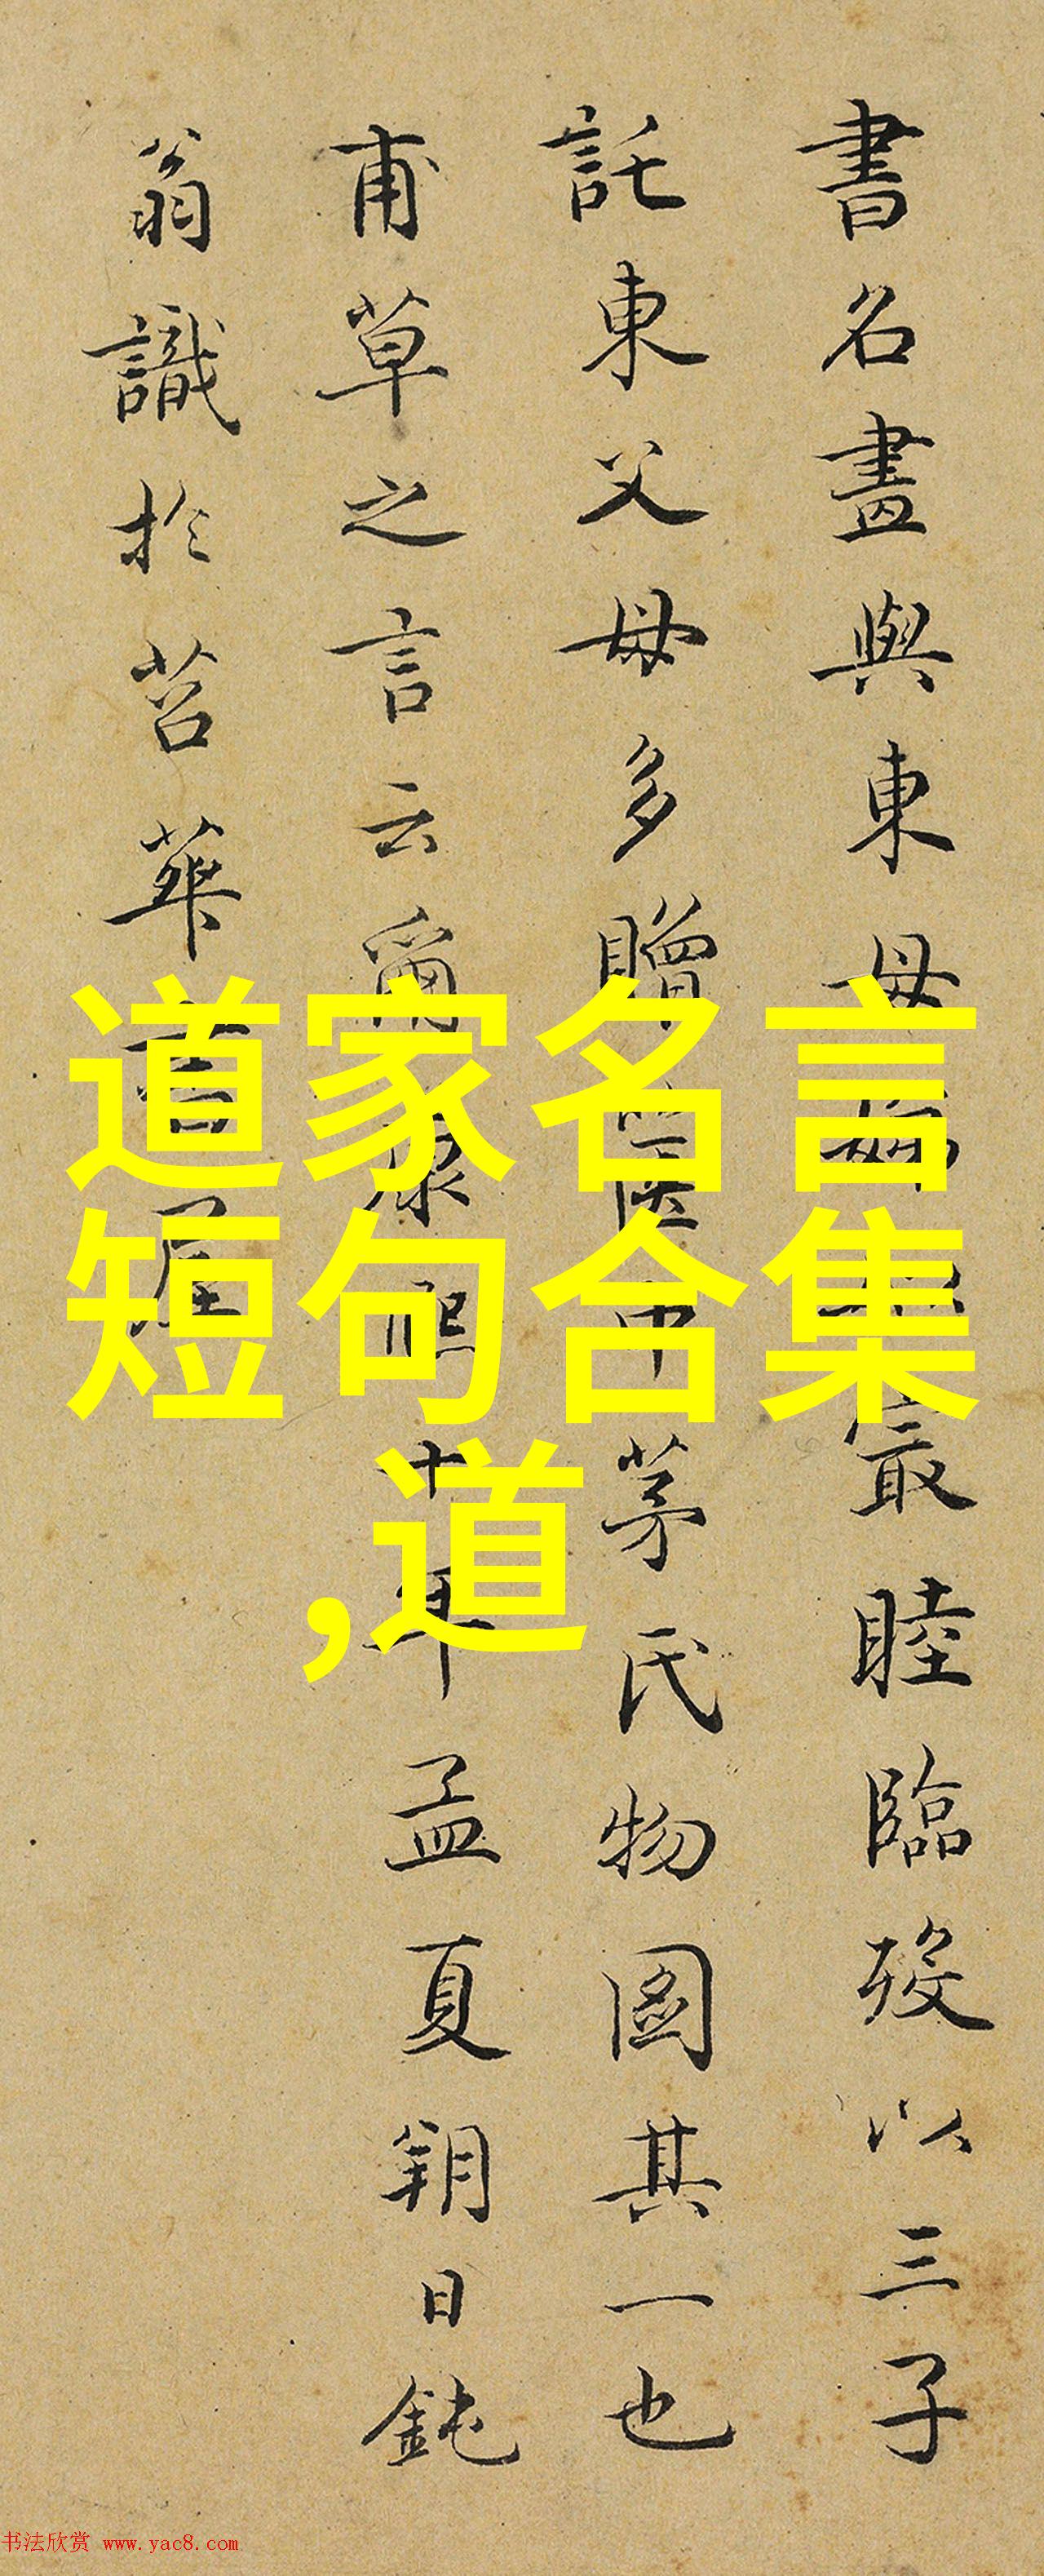 書名畫與東母
最睦臨歿以三子
託東父母多贈
茅氏物圖其一也
甫草之言云爾康熙十年孟夏朔日鈍
翁識於苕華書屋
道家名言
短句合集
,道
书法欣赏 www.yac8.com